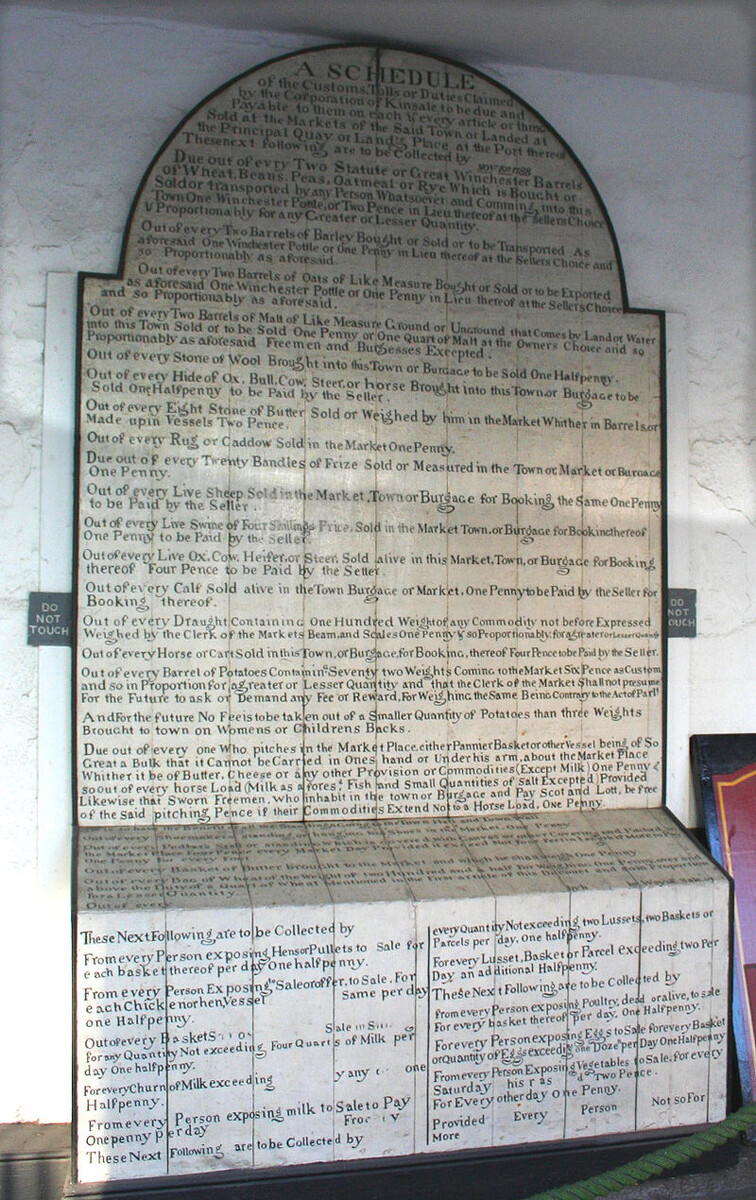 A SCHEDULE
of the Customs, Tolls or Duties Claimed
by the Corporation of Kinsale to be due and
Payable to them on each & every article or thing
Sold at the Markets of the Said Town or Landed at
the Principal Quay or Landg Place at the Port thereof
These next following are to be Collected by
Due out of evry Two Statute or Great Winchester Barrels
of Wheat, Beans, Peas, Oatmeal or Rye Which is Bought or
Sold or transported by any Person Whatsoever and Comming into this
Town One Winchester Pottle, or Two Pence in Lieu thereof at the Sellers Choice
& Proportionably for any Greater or Lesser Quantity.
Out of every Two Barrels of Barley Bought or Sold or to be Transported As
aforesaid One Winchester Pottle or One Penny in Lieu thereof at the Sellers Choice and
so Proportionably as aforesaid.
Out of every Two Barrels of Oats of Like Measure Bought or Sold or to be Exported
as aforesaid One Winchester Pottle or One Penny in Lieu thereof at the Sellers Choice
and so Proportionably as aforesaid.
Out of every Two Barrels of Malt of Like Measure Ground or Unground that Comes by Land or Water
into this Town Sold or to be Sold One Penny or One Quart of Malt at the Owners Choice and so
Proportionably as aforesaid Freemen and Burgesses Excepted.
Out of every Stone of Wool Brought into this Town or Burgage to be Sold One Halfpenny.
Out of every Hide of Ox, Bull, Cow, Steer, or Horse Brought into this Town, or Burgage to be
Sold One Halfpenny to be Paid by the Seller.
Out of every Eight Stone of Butter Sold or Weighed by him in the Market Whither in Barrels, or
Made up in Vessels Two Pence.
Out of every Rug or Caddow Sold in the Market One Penny.
Due out of every Twenty Bandles of Frize Sold or Measured in the Town or Market or Burgage
One Penny.
Out of every Live Sheep Sold in the Market, Town or Burgage for Booking the Same One Penny
to be Paid by the Seller.
Out of every Live Swine of Four Shillings Price, Sold in the Market Town, or Burgage for Booking thereof
One Penny to be Paid by the Seller.
Out of every Live Ox, Cow, Heifer, or Steer, Sold alive in this Market, Town, or Burgage for Booking
thereof Four Pence to be Paid by the Seller.
Out of every Calf Sold alive in the Town Burgage or Market, One Penny to be Paid by the Seller for
Booking thereof.
Out of every Draught Containing One Hundred Weight of any Commodity not before Expressed
Weighed by the Clerk of the Markets Beam, and Scales One Penny & so Proportionably, for a greater or Lesser Quantity
Out of every Horse or Cart Sold in this Town, or Burgage, for Booking, thereof Four Pence to be Paid by the Seller.
Out of every Barrel of Potatoes Containing Seventy two Weights Coming to the Market Six Pence as Custom
and so in Proportion for a greater or Lesser Quantity and that the Clerk of the Market Shall not presume
For the Future to ask or Demand any Fee or Reward, For Weighing the Same Being Contrary to the Act of Parlt
And For the future No Fee is to be taken out of a Smaller Quantity of Potatoes than three Weights
Brought to town on Womens or Childrens Backs.
Due out of every one Who pitches in the Market Place, either Pannier Basket or other Vessel being of So
Great a Bulk that it Cannot be Carried in Ones hand or Under his arm, about the Market Place
Whither it be of Butter, Cheese or any other Provision or Commodities (Except Milk) One Penny &
so out of every horse Load (Milk as afores.d Fish and Small Quantities of Salt Excepted) Provided
Likewise that Sworn Freemen, Who inhabit in the town or Burgage and Pay Scot and Lott, be free
of the Said pitching Pence if their Commodities Extend Not to a Horse Load, One Penny.
Out of every Basket of Butter brought to the Market and which he shall
Out of every
DO
NOT
TOUCH
DO
NOT
TOUCH
These Next Following are to be Collected by
From every Person exposing Hens or Pullets to Sale for
each basket thereof per day One halfpenny.
From every Person Exposing to Sale or offer, to Sale. For
each Chicken or hen, Vessel same per day
one Halfpenny.
Out of every Basket
for any Quantity Not exceeding Four Quarts of Milk per
day One halfpenny.
For every Churn of Milk exceeding any one
Halfpenny.
From every Person exposing milk to Sale to Pay
One penny per day
These Next Following are to be Collected by
every Quantity Not exceeding two Lussets, two Baskets or
Parcels per day. One halfpenny.
For every Lusset, Basket or Parcel exceeding two Per
Day an additional Halfpenny.
These Next Following are to be Collected by
from every Person exposing Poultry, dead or alive, to sale
For every basket thereof per day, One Halfpenny.
For every Person exposing Eggs to Sale for every Basket
or Quantity of Eggs exceeding one Dozen per Day One Halfpenny
From every Person Exposing Vegetables to Sale, for every
Saturday Two Pence.
For Every other day One Penny.
Provided Every Person Not so For
More